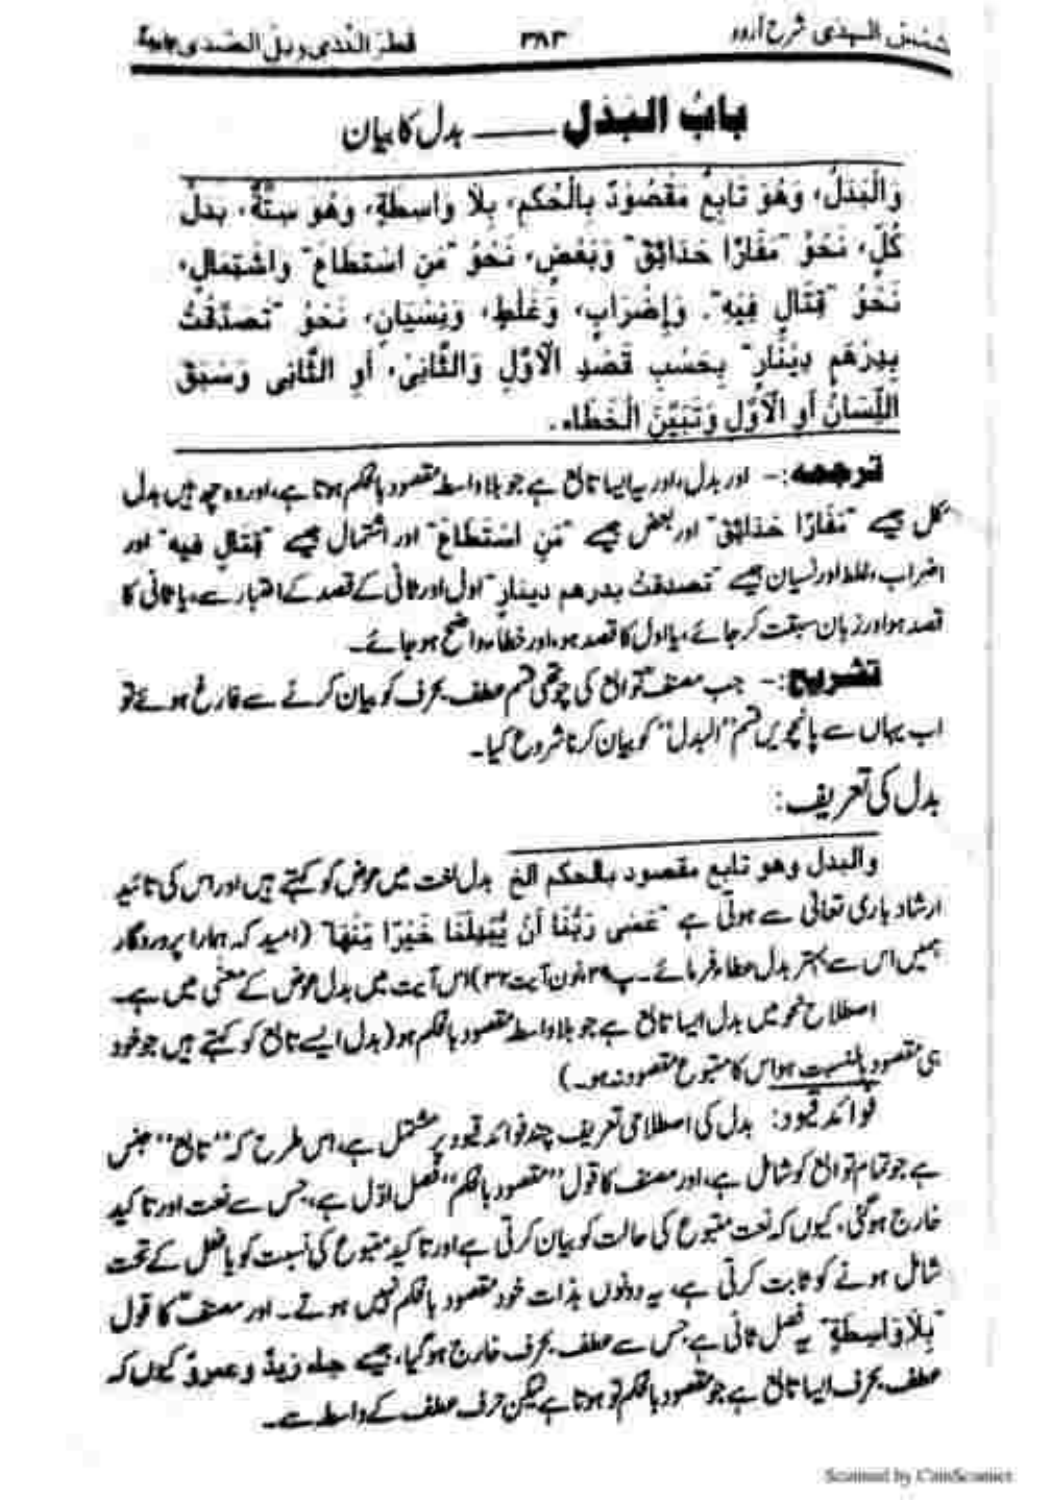 شمس الہدی شرح اردو ۳۸۳ قطر الندی وبل الصدی
بابُ البَدَل ــــــ بدل کا بیان
وَالْبَدَلُ، وَهُوَ تَابِعٌ مَقْصُوْدٌ بِالْحُكمِ، بِلَا وَاسِطَةٍ، وَهُوَ سِتَّةٌ، بَدَلُ
كُلٍّ، نَحْوُ "مَفَازًا حَدَائِقَ" وَبَعْضٍ، نَحْوُ "مَنِ اسْتَطَاعَ" واشْتِمَالٍ،
نَحْوُ "قِتَالٍ فِيْهِ". وَإِضْرَابٍ، وَغَلَطٍ، وَنِسْيَانٍ، نَحْوُ "تَصَدَّقْتُ
بِدِرْهَمٍ دِيْنَارٍ" بِحَسْبِ قَصْدِ الْاَوَّلِ وَالثَّانِيْ، أَوِ الثَّانِي وَسَبَقَ
اللِّسَانُ أَوِ الْاَوَّلِ وَتَبَيَّنَ الْخَطَاء.
ترجمه:- اور بدل، اور یہ ایسا تابع ہے جو بلا واسطہ مقصود بالحکم ہوتا ہے، اور وہ چھ ہیں بدل
کل جیسے "مَفَازًا حَدَائِقَ" اور بعض جیسے "مَنِ اسْتَطَاعَ" اور اشتمال جیسے "قِتَالٍ فِيه" اور
اضراب، غلط اور نسیان جیسے "تصدقتُ بدرهم دينارٍ" اول اور ثانی کے قصد کے اعتبار سے، یا ثانی کا
قصد ہو اور زبان سبقت کر جائے، یا اول کا قصد ہو، اور خطاء واضح ہو جائے۔
تشریح:- جب مصنفؒ توابع کی چوتھی قسم عطف بحرف کو بیان کرنے سے فارغ ہوئے تو
اب یہاں سے پانچویں قسم "البدل" کو بیان کرنا شروع کیا۔
بدل کی تعریف:
والبدل وهو تابع مقصود بالحكم الخ بدل لغت میں عوض کو کہتے ہیں اور اس کی تائید
ارشاد باری تعالی سے ہوتی ہے "عَسٰى رَبُّنَا أَنْ يُّبْدِلَنَا خَيْرًا مِّنْهَا" (امید کہ ہمارا پروردگار
ہمیں اس سے بہتر بدل عطاء فرمائے۔ پ۲۹، نون آیت ۳۲) اس آیت میں بدل عوض کے معنٰی میں ہے۔
اصطلاح نحو میں بدل ایسا تابع ہے جو بلا واسطہ مقصود بالحکم ہو (بدل ایسے تابع کو کہتے ہیں جو خود
ہی مقصود بالنسبت ہو اس کا متبوع مقصود نہ ہو۔)
فوائد قیود: بدل کی اصطلاحی تعریف چند فوائد قیود پر مشتمل ہے، اس طرح کہ "تابع" جنس
ہے جو تمام توابع کو شامل ہے، اور مصنف کا قول "مقصود بالحکم" فصل اوّل ہے، جس سے نعت اور تاکید
خارج ہوگئی، کیوں کہ نعت متبوع کی حالت کو بیان کرتی ہے اور تاکید متبوع کی نسبت کو یا فعل کے تحت
شامل ہونے کو ثابت کرتی ہے، یہ دونوں بذات خود مقصود بالحکم نہیں ہوتے۔ اور مصنفؒ کا قول
"بِلَا وَاسِطَةٍ" یہ فصل ثانی ہے جس سے عطف بحرف خارج ہوگیا، جیسے جاء زيدٌ وعمروٌ کیوں کہ
عطف بحرف ایسا تابع ہے جو مقصود بالحکم تو ہوتا ہے لیکن حرف عطف کے واسطہ سے۔
Scanned by CamScanner